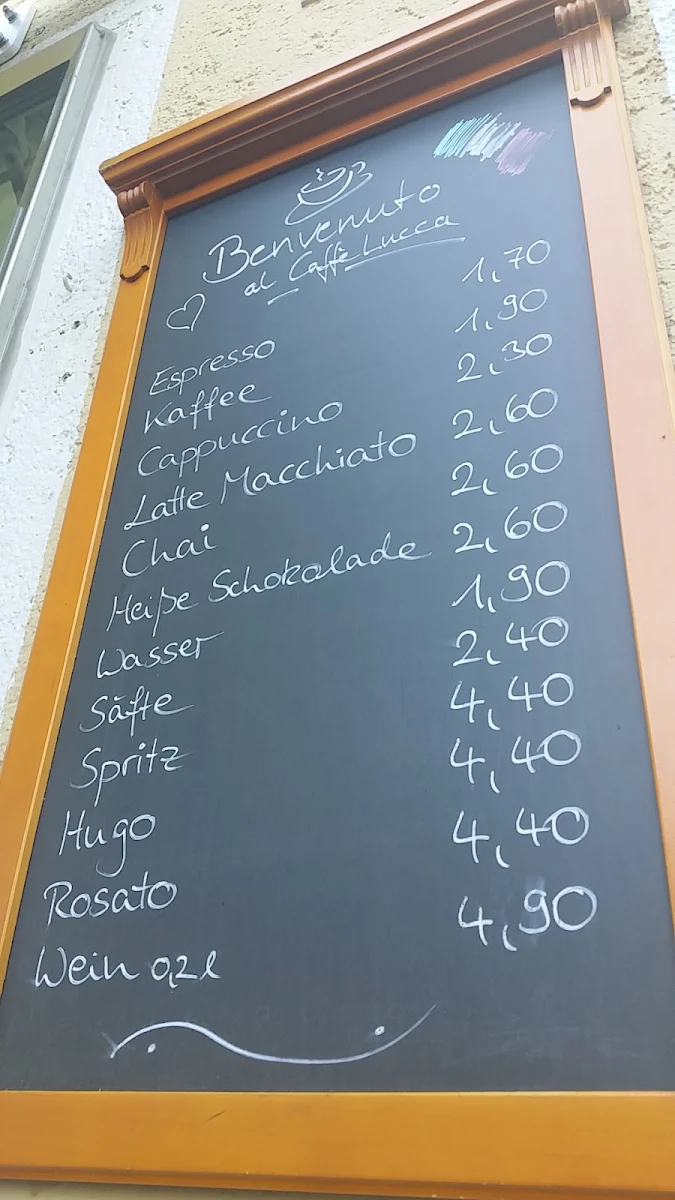 Benvenuto
al Caffè Lucca
Espresso 1,70
Kaffee 1,90
Cappuccino 2,30
Latte Macchiato 2,60
Chai 2,60
Heiße Schokolade 2,60
Wasser 1,90
Säfte 2,40
Spritz 4,40
Hugo 4,40
Rosato 4,40
Wein 0,2l 4,90